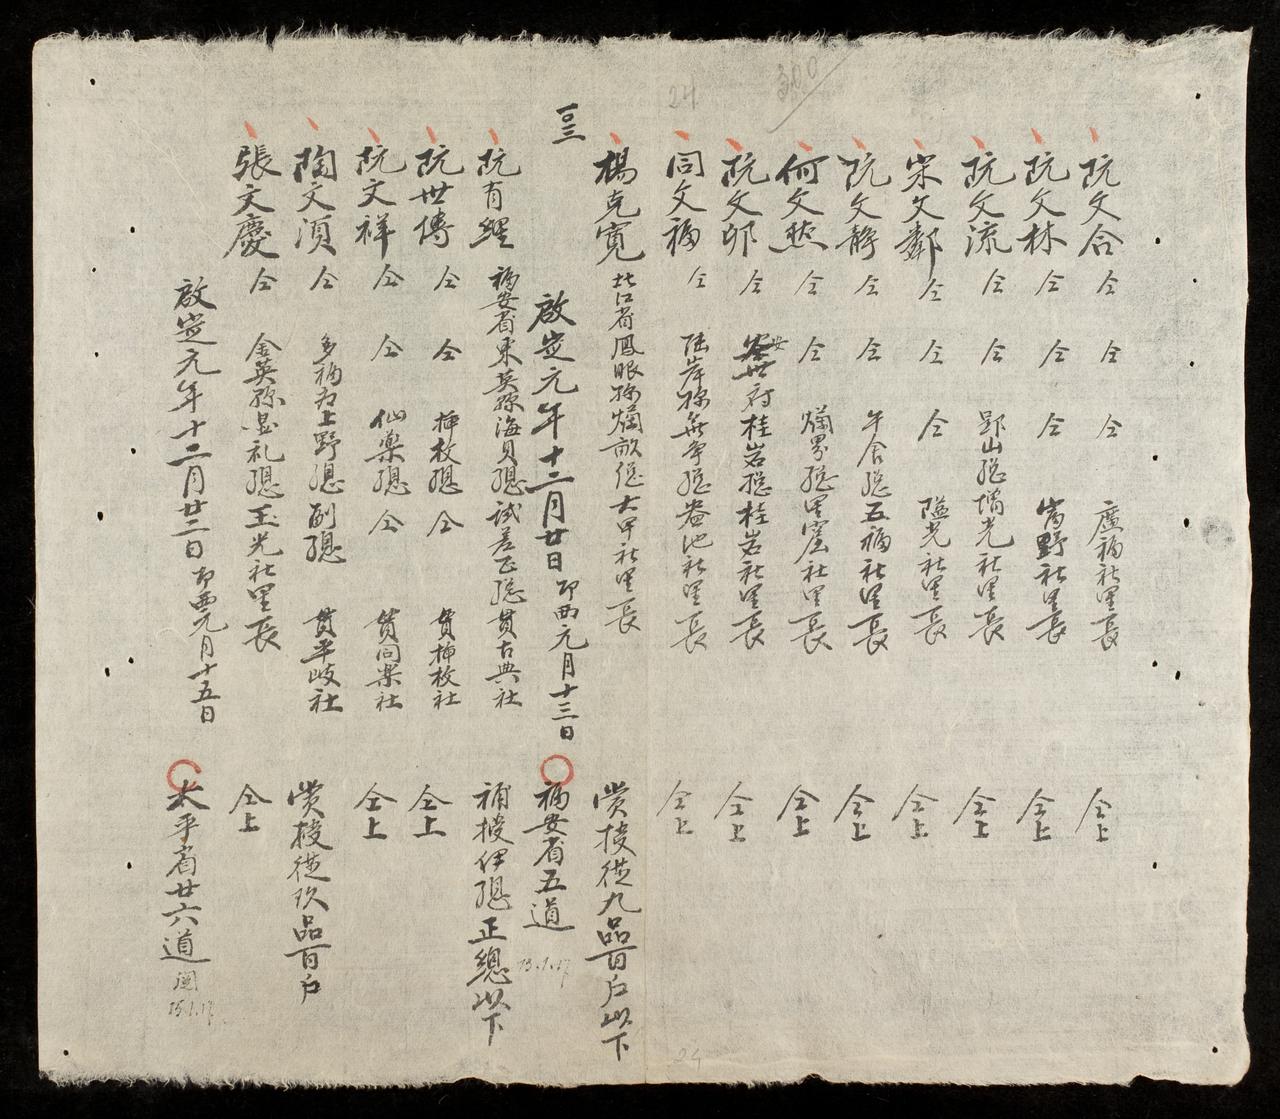 300
24
阮文合 仝 仝 仝 廬福社里長 仝上
阮文林 仝 仝 仝 嵩野社里長 仝上
阮文流 仝 仝 郢山總 光社里長 仝上
宋文鄰 仝 仝 仝 隘光社里長 仝上
阮文靜 仝 仝 午舍總五福社里長 仝上
何文愁 仝 仝 爛界總里窰社里長 仝上
阮文卯 仝 世 府桂岩總桂岩社里長 仝上
同文福 仝 陸岸縣無爭總 池社里長 仝上
楊克寬 北江省鳳眼縣爛畝總大甲社里長 賞授從九品百戶以下
百三
啟定元年十二月廿日 即西元月十三日 福安省五道
13.1.17
阮有經 福安省東英縣海貝總試差正總 貫古典社 補授伊總正總以下
阮世傳 仝 仝 捭枚總 仝 貫捭枚社 仝上
阮文祥 仝 仝 仙藥總 仝 貫同樂社 仝上
陶文湏 仝 多福 上野總副總 貫平岐社 賞授從玖品百戶
張文慶 仝 金英縣 礼總玉光社里長 仝上
啟定元年十二月廿二日 即西元月十五日 太平省廿六道
15.1.17
24